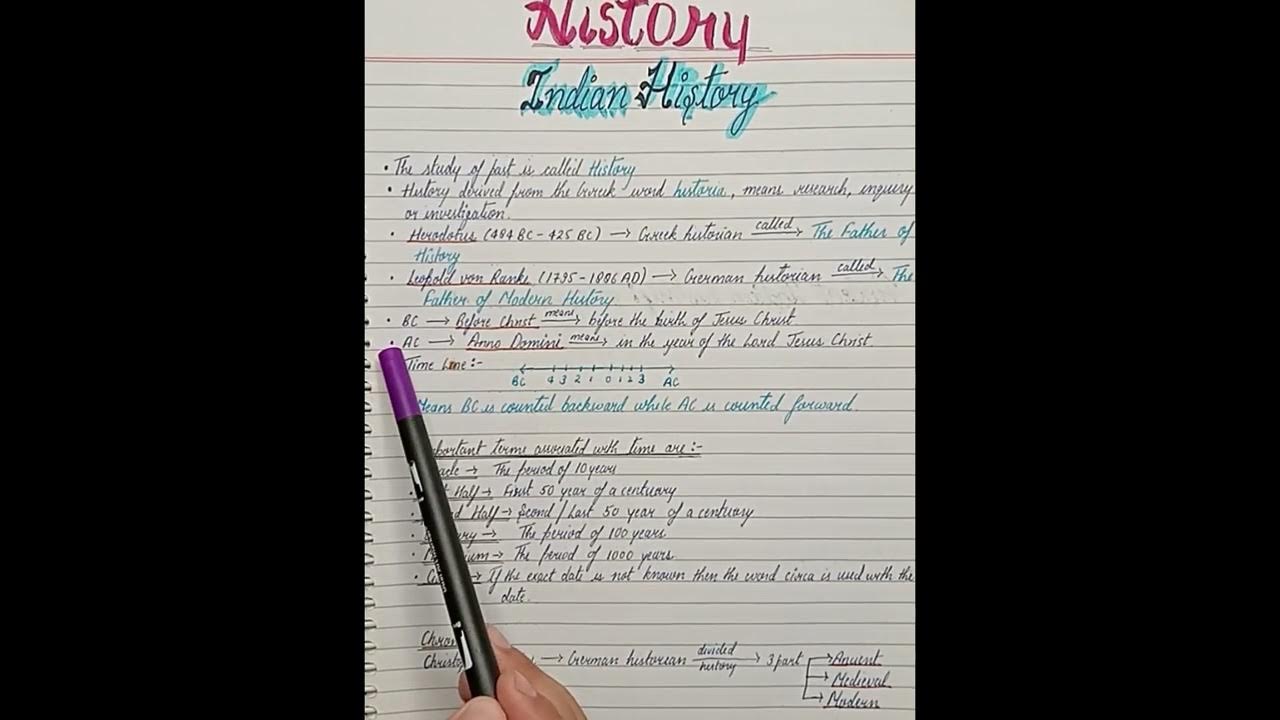 History
Indian History
• The study of past is called History
• History derived from the Greek word historia, means research, inquiry
or investigation.
• Herodotus (484 BC - 425 BC) → Greek historian called → The Father of
History
• Leopold von Ranke (1795 - 1886 AD) → German historian called → The
Father of Modern History
• BC → Before Christ means → before the birth of Jesus Christ
• AC → Anno Domini means → in the year of the Lord Jesus Christ.
Time Line :-
BC 4 3 2 1 0 1 2 3 AC
Means BC is counted backward while AC is counted forward.
terms associated with time are :-
→ The period of 10 years
Half → First 50 year of a centuary
Half → Second / Last 50 year of a centuary
→ The period of 100 years
→ The period of 1000 years
→ If the exact date is not known then the word circa is used with the
date.
→ German historian divided history → 3 part → Ancient
→ Medieval
→ Modern